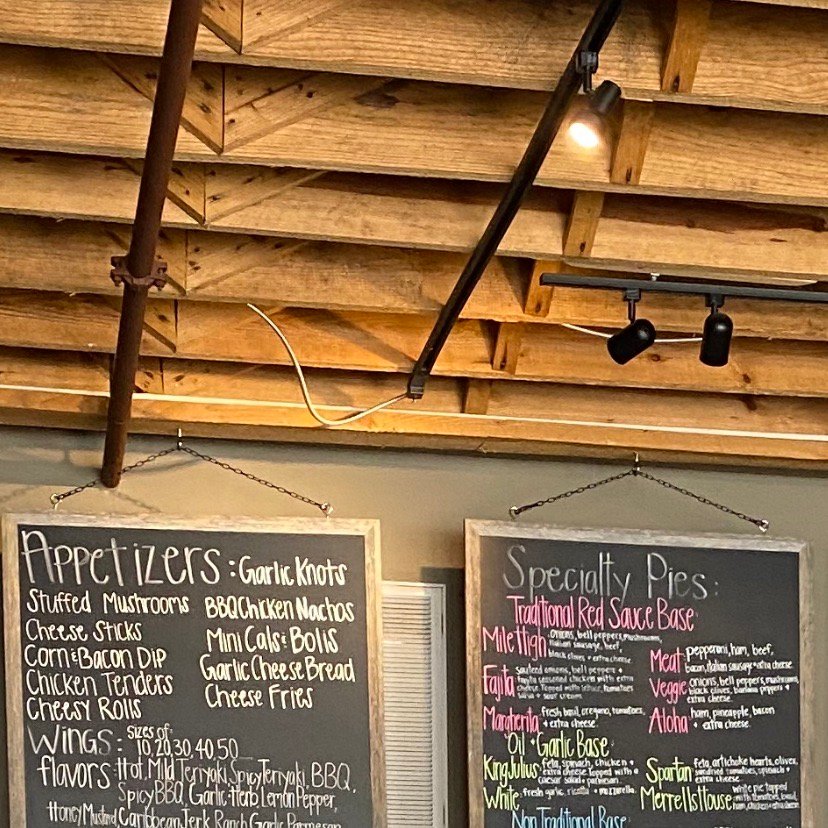 Appetizers: Garlic Knots
Stuffed Mushrooms BBQ Chicken Nachos
Cheese Sticks Mini Cals & Bolis
Corn & Bacon Dip Garlic Cheese Bread
Chicken Tenders Cheese Fries
Cheesy Rolls
Wings: Sizes of:
10, 20, 30, 40, 50
flavors: Hot, Mild, Teriyaki, Spicy Teriyaki, BBQ,
Spicy BBQ, Garlic Herb, Lemon Pepper,
Honey Mustard, Caribbean Jerk, Ranch, Garlic Parmesan
Specialty Pies:
Traditional Red Sauce Base:
Mile High: onions, bell peppers, mushrooms,
italian sausage, beef,
black olives + extra cheese
Fajita sauteed onions, bell peppers +
fajita seasoned chicken with extra
cheese. Topped with lettuce, tomatoes
salsa + sour cream
Margherita: fresh basil, oregano, tomatoes,
+ extra cheese.
Meat: pepperoni, ham, beef,
bacon, italian sausage + extra cheese
Veggie: onions, bell peppers, mushrooms,
black olives, banana peppers +
extra cheese.
Aloha: ham, pineapple, bacon
+ extra cheese.
Oil + Garlic Base:
King Julius: feta, spinach, chicken +
extra cheese topped with a
caesar salad + parmesan
White: fresh garlic, ricotta + mozzarella.
Spartan: feta, artichoke hearts, olives,
sundried tomatoes, spinach +
extra cheese
Merrells House: white pie topped
with tomatoes, basil,
ham, chicken + extra cheese
Non Traditional Base